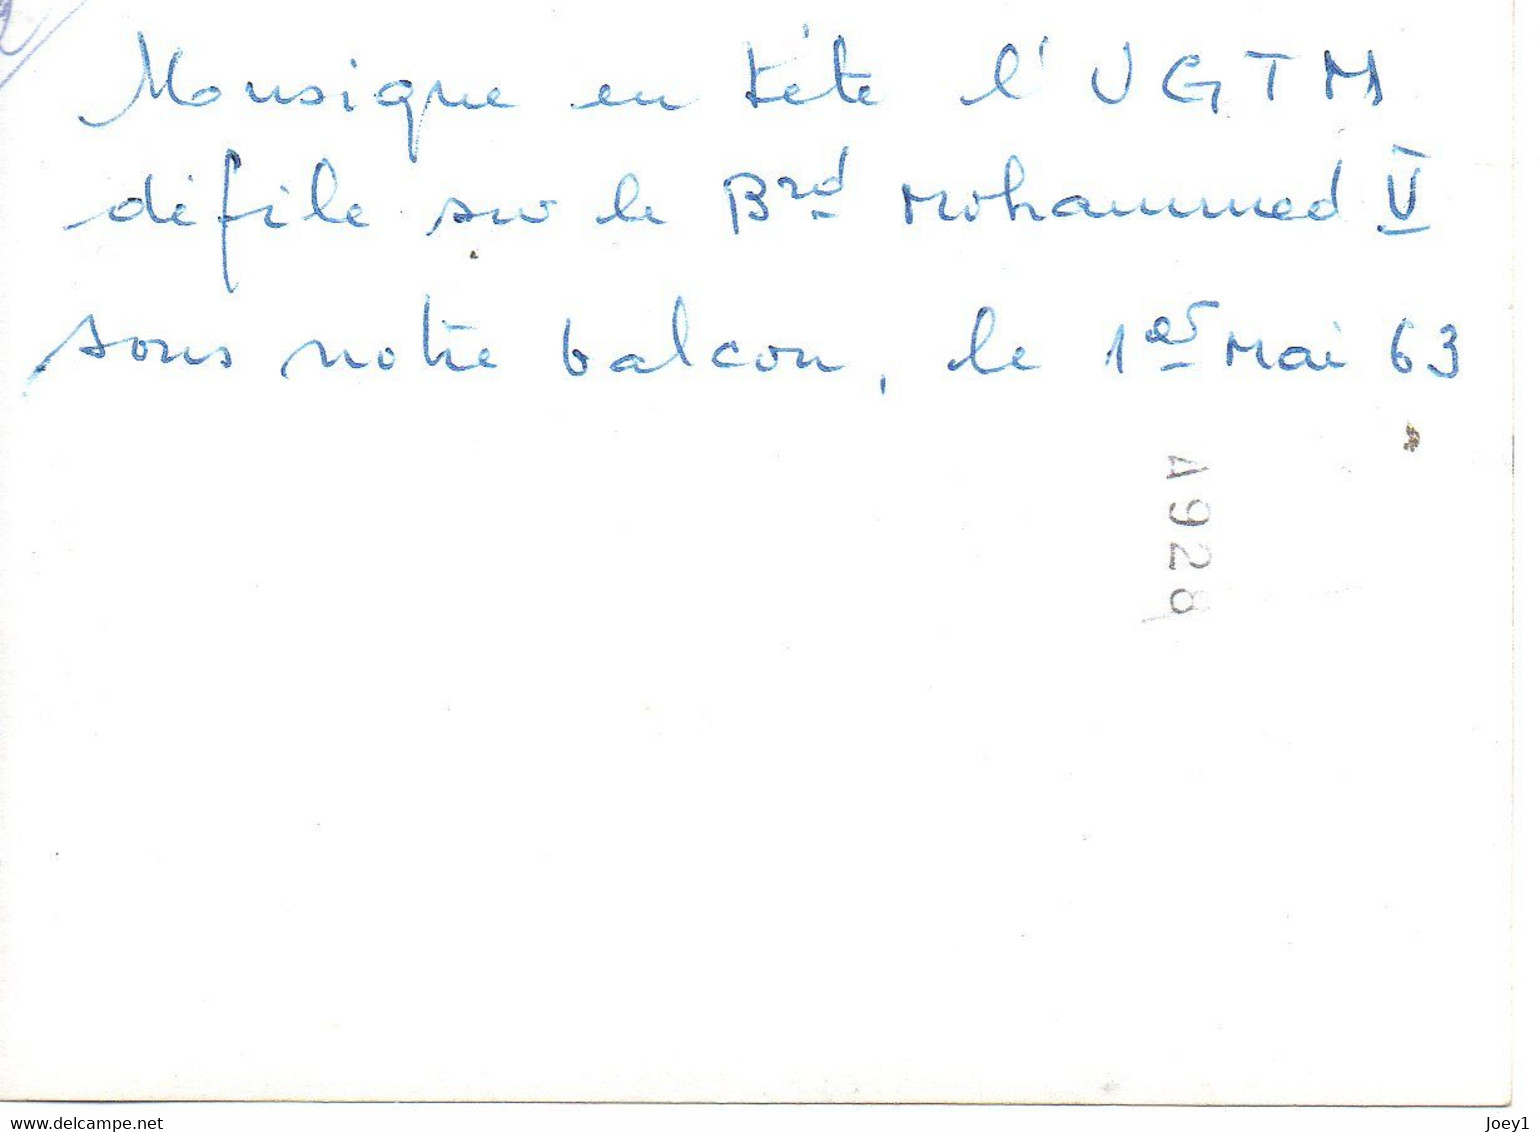 Mousique en tête l'UGTM
défile sur le Brd Mohammed V
sous notre balcon, le 1er Mai 63
A928
delcampe.net
Joey1